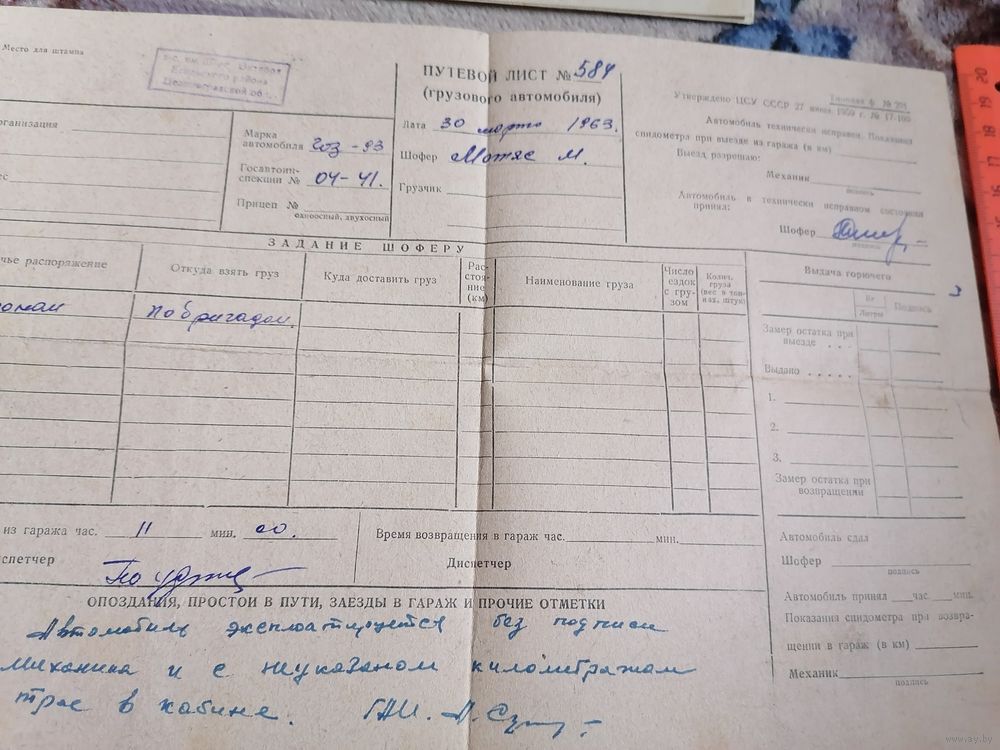 Место для штампа
Есильского района
Целиноградской обл.
ПУТЕВОЙ ЛИСТ № 584
(грузового автомобиля)
Типовая ф. № 291
Утверждено ЦСУ СССР 27 июня 1959 г. № 17-100
рганизация
Марка
автомобиля Газ-93
Госавтоин-
спекции № 04-41.
Прицеп №
одноосный, двухосный
Дата 30 марта 1963.
Шофер Мотяс М.
Грузчик
Автомобиль технически исправен. Показания
спидометра при выезде из гаража (в км)
Выезд разрешаю:
Механик
подпись
Автомобиль в технически исправном состоянии
принял:
Шофер
подпись
ЗАДАНИЕ ШОФЕРУ
чье распоряжение
Откуда взять груз
Куда доставить груз
Рас-
стоя-
ние
(км)
Наименование груза
Число
ездок
с гру-
зом
Колич.
груза
(вес в тон-
нах, штук)
по бригадам
Выдача горючего
Кг
Литры
Подпись
Замер остатка при
выезде . . .
Выдано . . . . .
1.
2.
3.
Замер остатка при
возвращении
из гаража час. 11 мин. 00.
Время возвращения в гараж час. мин.
спетчер
Диспетчер
Автомобиль сдал
Шофер
подпись
Автомобиль принял час. мин.
Показания спидометра при возвра-
щении в гараж (в км)
Механик
подпись
ОПОЗДАНИЯ, ПРОСТОИ В ПУТИ, ЗАЕЗДЫ В ГАРАЖ И ПРОЧИЕ ОТМЕТКИ
Автомобиль эксплоатируется без подписи
механика и с неуказаном километражам
трос в кабине. ГАИ.
20
19
18
17
16
www.ay.by